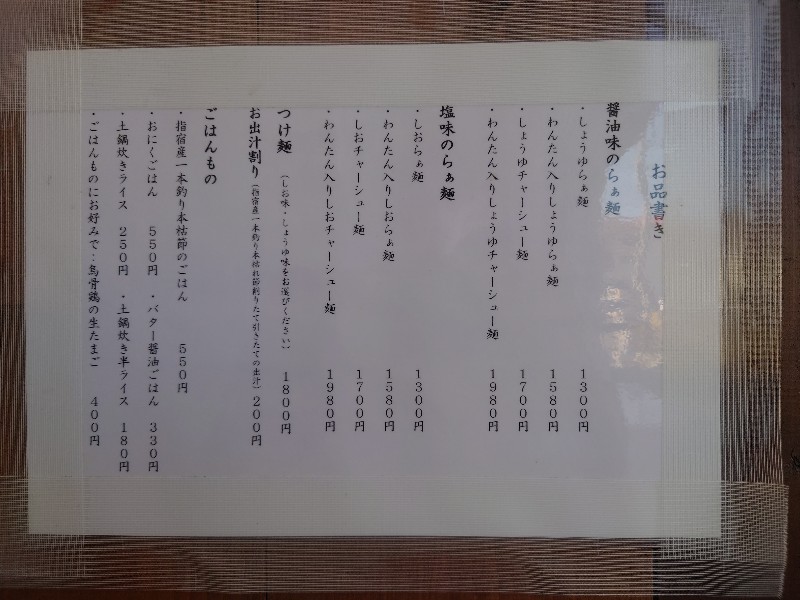 お品書き
醤油味のらぁ麺
・しょうゆらぁ麺 1300円
・わんたん入りしょうゆらぁ麺 1580円
・しょうゆチャーシュー麺 1700円
・わんたん入りしょうゆチャーシュー麺 1980円
塩味のらぁ麺
・しおらぁ麺 1300円
・わんたん入りしおらぁ麺 1580円
・しおチャーシュー麺 1700円
・わんたん入りしおチャーシュー麺 1980円
つけ麺 (しお味・しょうゆ味をお選びください) 1800円
お出汁割り(指宿産一本釣り本枯れ節削りたて引きたての出汁)200円
ごはんもの
・指宿産一本釣り本枯節のごはん 550円
・おにくごはん 550円 ・バター醤油ごはん 330円
・土鍋炊きライス 250円 ・土鍋炊き半ライス 180円
・ごはんものにお好みで：烏骨鶏の生たまご 400円